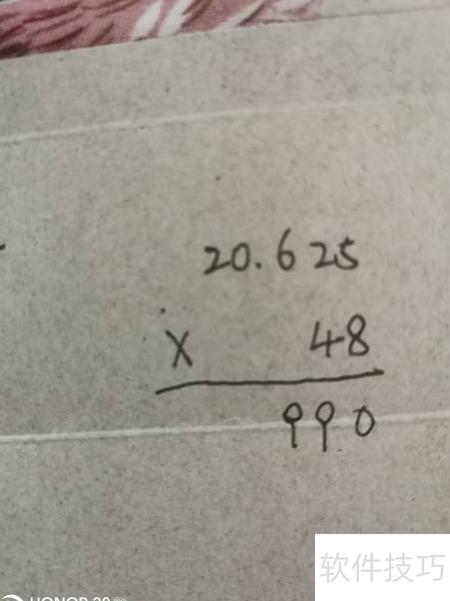 20.625
× 48
990
软件技巧
HONOR 20